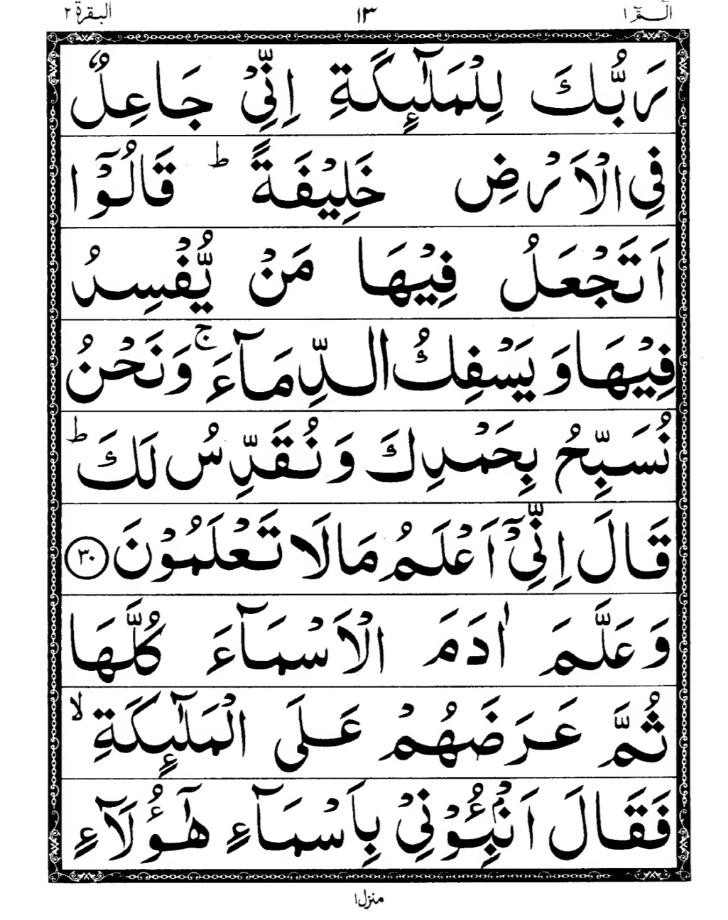 الٓمّٓ ١ ١٣ البقرة ٢
رَبُّكَ لِلْمَلٰٓئِكَةِ اِنِّیْ جَاعِلٌ
فِی الْاَرْضِ خَلِیْفَةً ؕ قَالُوْۤا
اَتَجْعَلُ فِیْهَا مَنْ یُّفْسِدُ
فِیْهَا وَ یَسْفِكُ الدِّمَآءَ ۚ وَ نَحْنُ
نُسَبِّحُ بِحَمْدِكَ وَ نُقَدِّسُ لَكَ ؕ
قَالَ اِنِّیْۤ اَعْلَمُ مَا لَا تَعْلَمُوْنَ ۝۳۰
وَ عَلَّمَ اٰدَمَ الْاَسْمَآءَ كُلَّهَا
ثُمَّ عَرَضَهُمْ عَلَی الْمَلٰٓئِكَةِ ۙ
فَقَالَ اَنْۢبِـُٔوْنِیْ بِاَسْمَآءِ هٰۤؤُلَآءِ
منزل ١